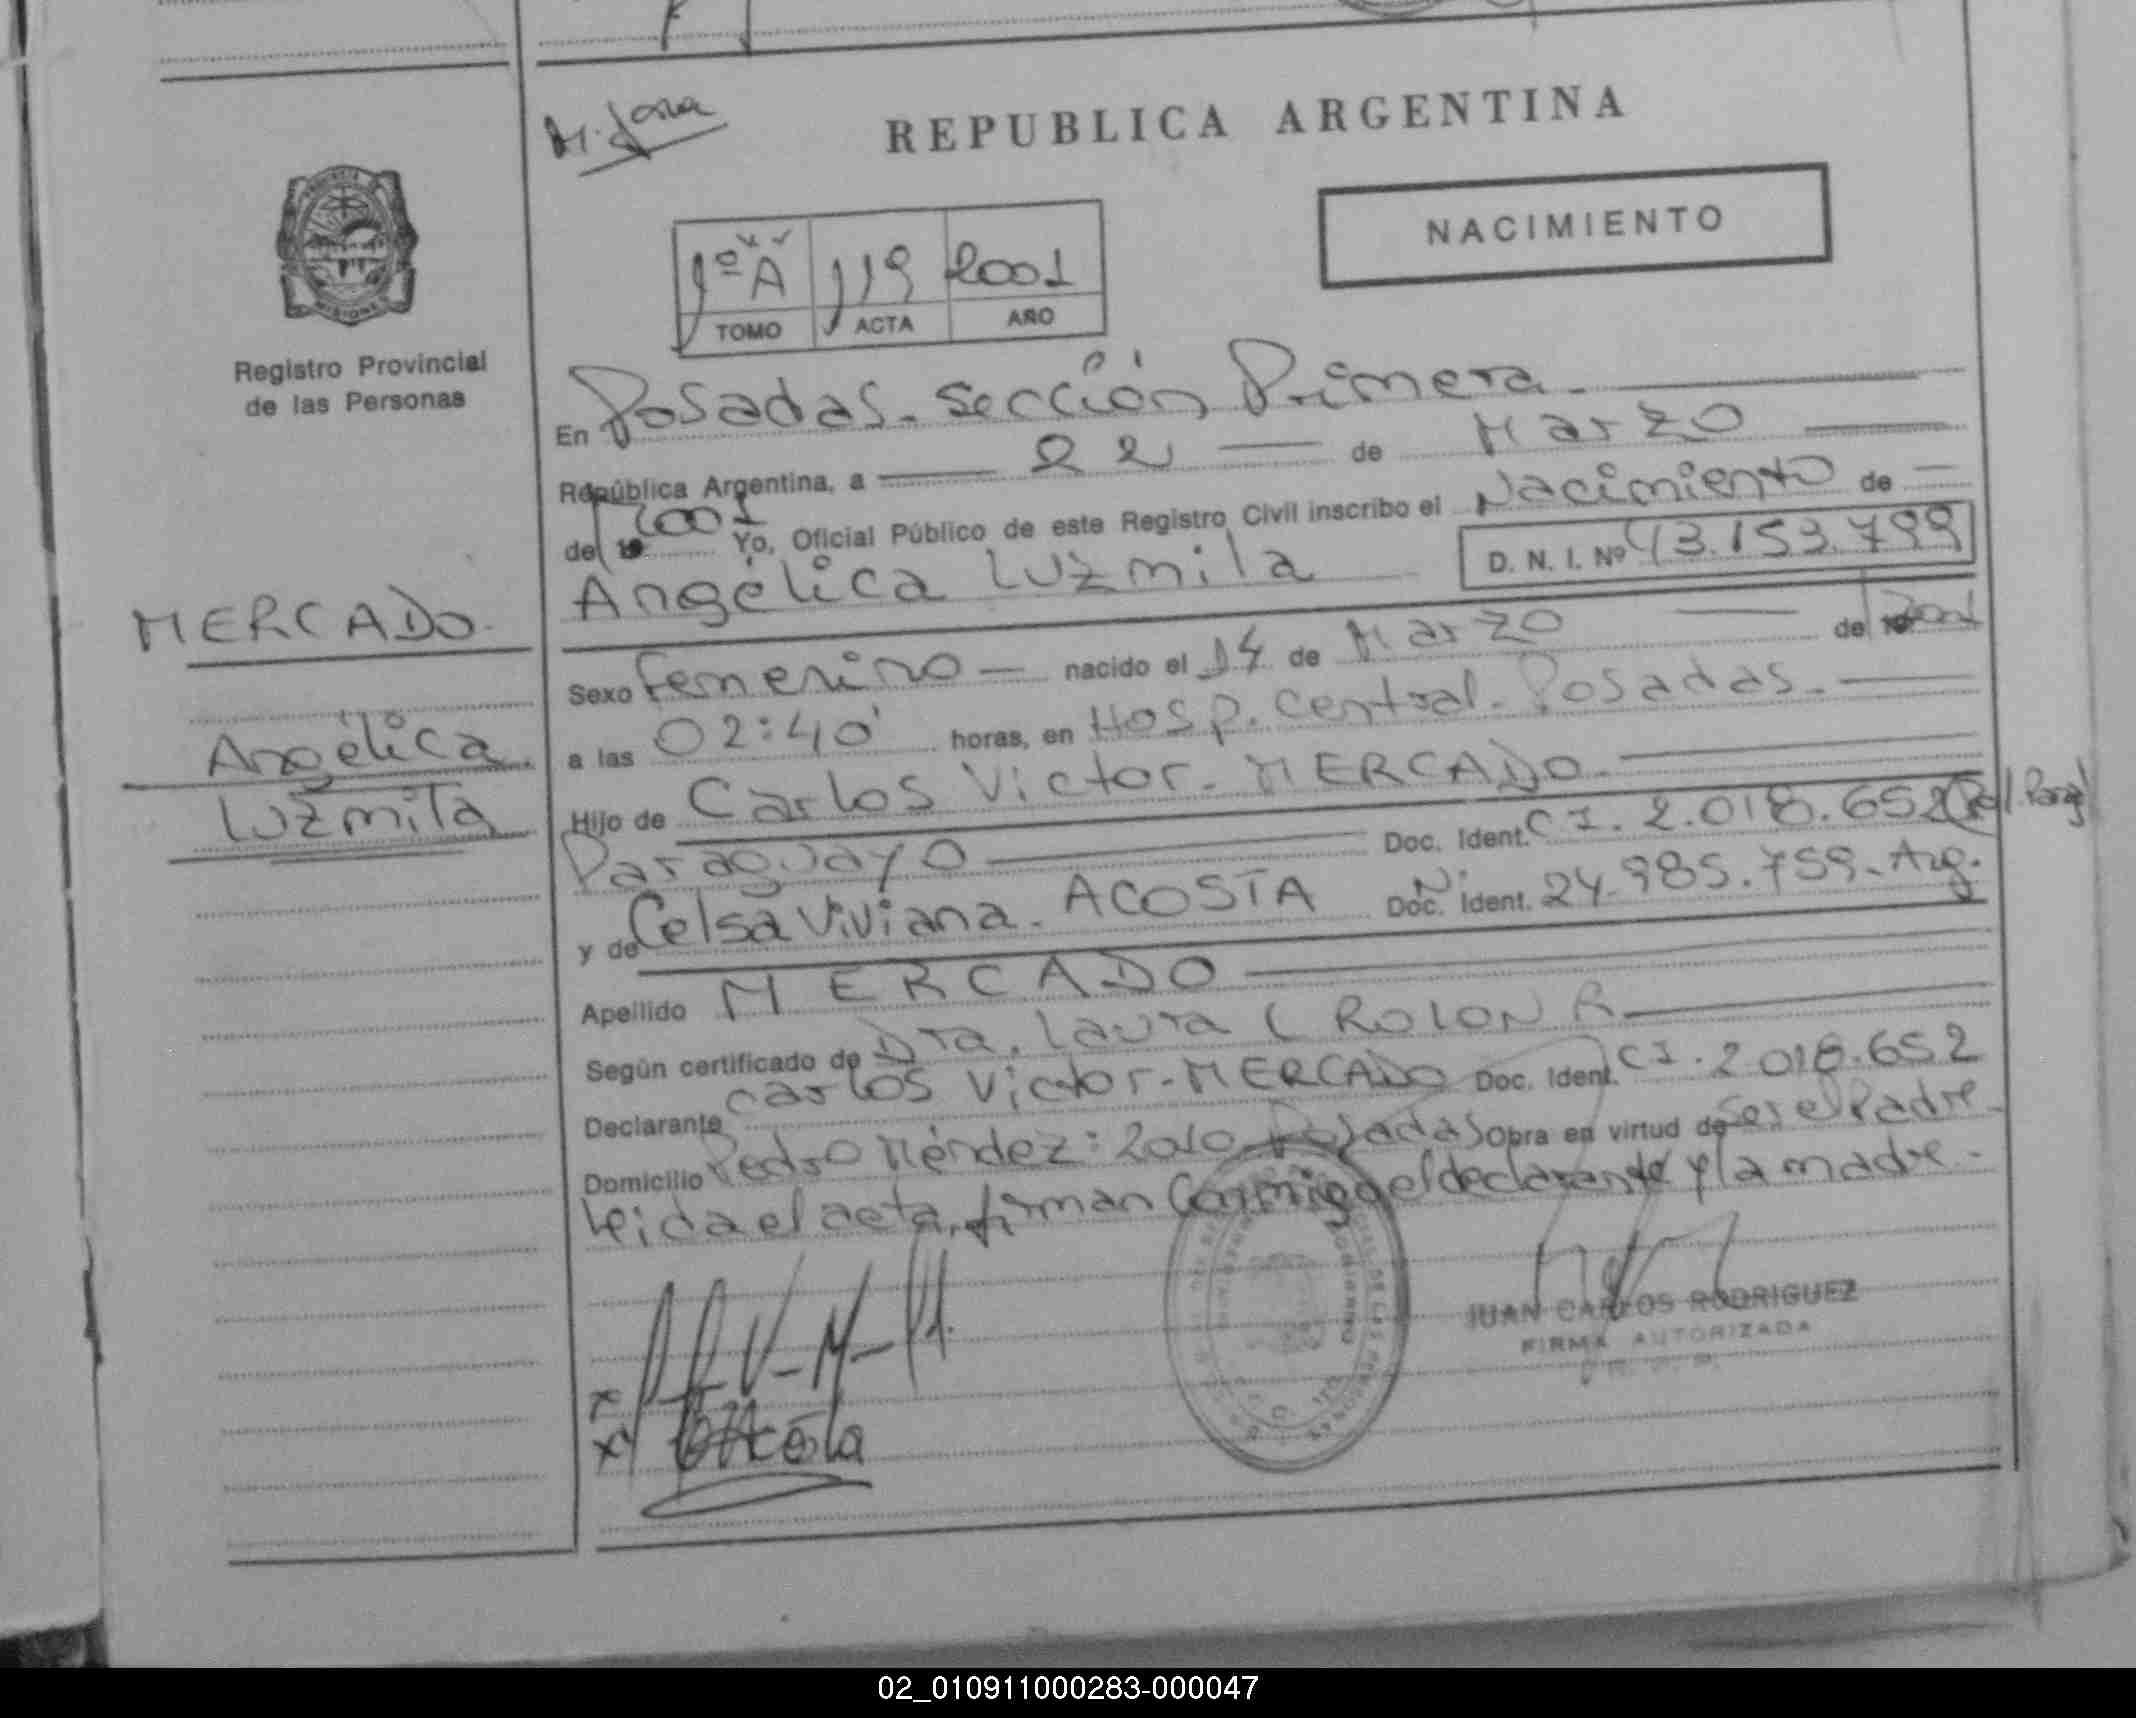 REPUBLICA ARGENTINA
NACIMIENTO
1º A 119 2001
TOMO ACTA AÑO
Registro Provincial
de las Personas
MERCADO
Angélica
Luzmila
En Posadas - Sección Primera
República Argentina, a 22 de Marzo
de 2001 Yo, Oficial Público de este Registro Civil inscribo el Nacimiento de
Angélica Luzmila D. N. I. Nº 43.153.799
Sexo Femenino nacido el 14 de Marzo de 2001
a las 02:40' horas, en Hosp. Central - Posadas
Hijo de Carlos Victor - MERCADO
Paraguayo Doc. Ident. C I. 2.018.652 (Pol. Parag)
y de Celsa Viviana - ACOSTA Doc. Ident. 24.985.759 - Arg.
Apellido MERCADO
Según certificado de Dra. Laura C ROLON R
Declarante Carlos Victor - MERCADO Doc. Ident. C I. 2.018.652
Domicilio Pedro Méndez: 2010 Posadas Obra en virtud de Ser el Padre
leida el acta, firman Conmigo el declarante y la madre
JUAN CARLOS RODRIGUEZ
FIRMA AUTORIZADA
02_010911000283-000047